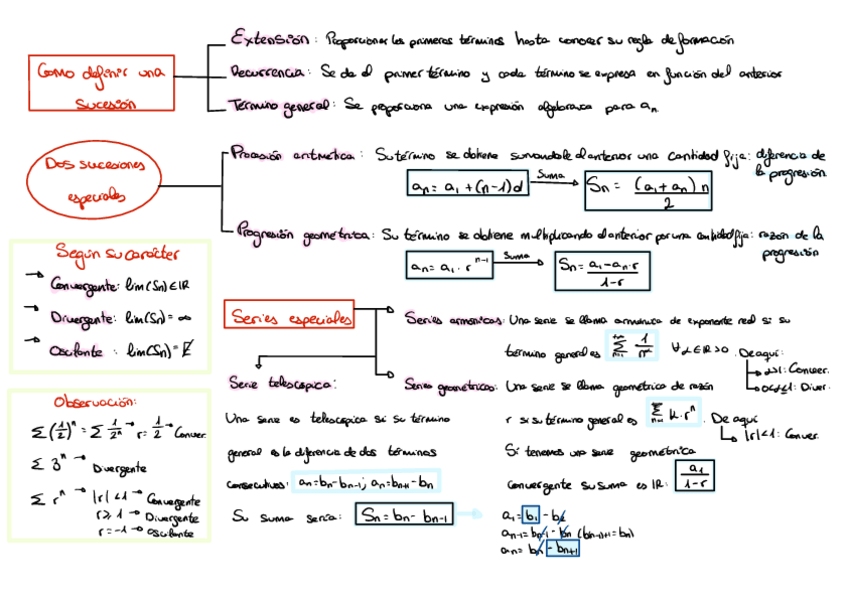 Como definir una
sucesión
Extensión: Proporcionar los primeros términos hasta conocer su regla de formación
Recurrencia: Se da el primer término y cada término se expresa en función del anterior
Término general: Se proporciona una expresión algebraica para an
Dos sucesiones
especiales
Progresión aritmética: Su término se obtiene sumandole al anterior una cantidad fija: diferencia de
la progresión
an = a1 + (n-1)d
Suma
Sn = (a1 + an) n / 2
Progresión geométrica: Su término se obtiene multiplicando el anterior por una cantidad fija: razón de la
progresión
an = a1 · r^n-1
Suma
Sn = a1 - an · r / 1-r
Según su carácter
→ Convergente: lim(Sn) ∈ IR
→ Divergente: lim(Sn) = ∞
→ Oscilante : lim(Sn) = ∄
Observación:
Σ(1/2)^n = Σ 1/2^n → r = 1/2 → Conver
Σ 3^n → Divergente
Σ r^n → |r| < 1 → Convergente
r ≥ 1 → Divergente
r = -1 → Oscilante
Series especiales
Series armónicas: Una serie se llama armónica de exponente real si su
término general es Σ 1/n^α ∀α ∈ IR > 0. De aqui:
α>1: Conver.
0<α≤1: Diver.
Serie telescópica:
Una serie es telescópica si su término
general es la diferencia de dos términos
consecutivos: an = bn - bn-1; an = bn+1 - bn
Su suma sería: Sn = bn - bn-1
Series geométricas: Una serie se llama geométrica de razón
r si su término general es Σ k · r^n. De aquí
|r| < 1: Conver.
Si tenemos una serie geométrica
convergente su suma es IR: a1 / 1-r
a1 = b1 - b2
an-1 = bn-1 - bn (bn-1+1 = bn)
an = bn - bn+1